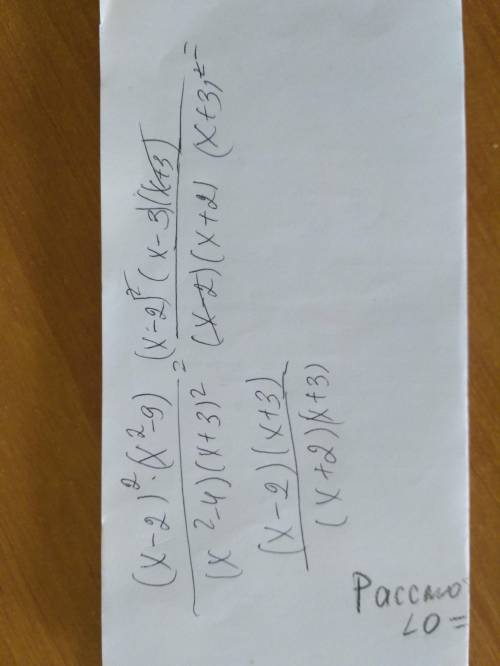 (x-2)²·(x²-9) / (x²-4)(x+3)² = (x-2)²(x-3)(x+3) / (x-2)(x+2)(x+3)² =
(x-2)(x+3) / (x+2)(x+3)
Рассмо
∠O =